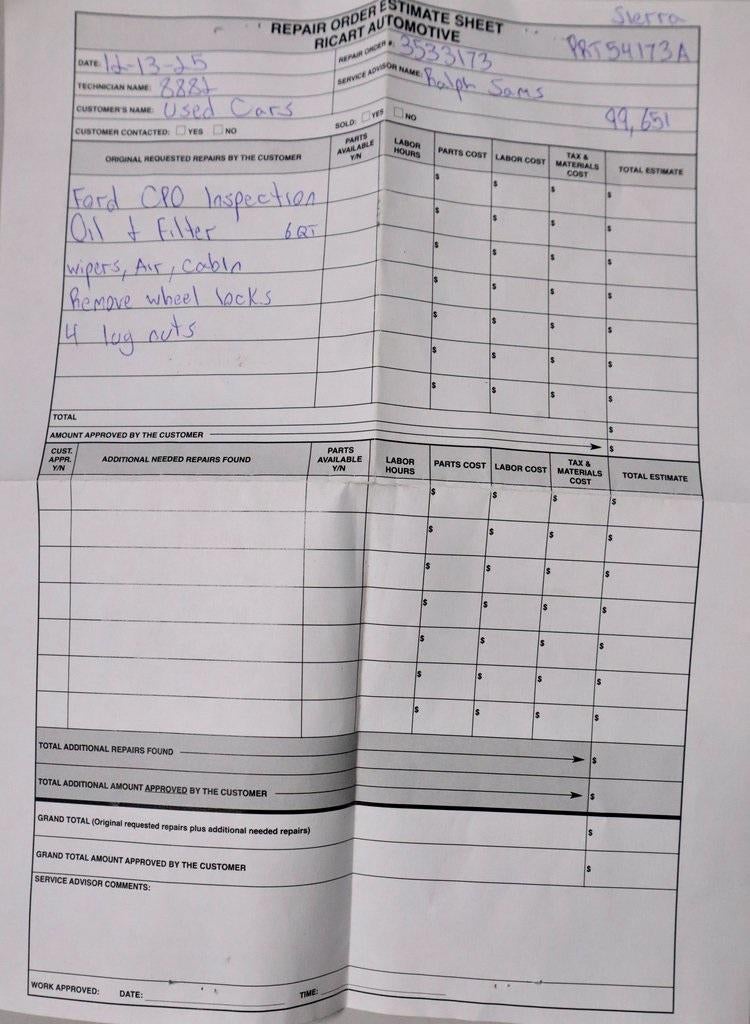 Sierra
REPAIR ORDER ESTIMATE SHEET
RICART AUTOMOTIVE
PRT54173A
DATE: 12-13-25
REPAIR ORDER #: 3533173
TECHNICIAN NAME: 8882
SERVICE ADVISOR NAME: Ralph Sams
CUSTOMER'S NAME: Used Cars
99,651
CUSTOMER CONTACTED: YES NO
SOLD: YES NO
ORIGINAL REQUESTED REPAIRS BY THE CUSTOMER PARTS AVAILABLE Y/N LABOR HOURS PARTS COST LABOR COST TAX & MATERIALS COST TOTAL ESTIMATE
$ $ $ $
Ford CPO Inspection $ $ $ $
Oil + Filter 6QT $ $ $ $
wipers, Air, Cabin $ $ $ $
Remove wheel locks $ $ $ $
4 lug nuts $ $ $ $
$ $ $ $
TOTAL $
AMOUNT APPROVED BY THE CUSTOMER $
CUST. APPR. Y/N ADDITIONAL NEEDED REPAIRS FOUND PARTS AVAILABLE Y/N LABOR HOURS PARTS COST LABOR COST TAX & MATERIALS COST TOTAL ESTIMATE
$ $ $ $
$ $ $ $
$ $ $ $
$ $ $ $
$ $ $ $
$ $ $ $
$ $ $ $
TOTAL ADDITIONAL REPAIRS FOUND $
TOTAL ADDITIONAL AMOUNT APPROVED BY THE CUSTOMER $
GRAND TOTAL (Original requested repairs plus additional needed repairs) $
GRAND TOTAL AMOUNT APPROVED BY THE CUSTOMER $
SERVICE ADVISOR COMMENTS:
WORK APPROVED: DATE: TIME: